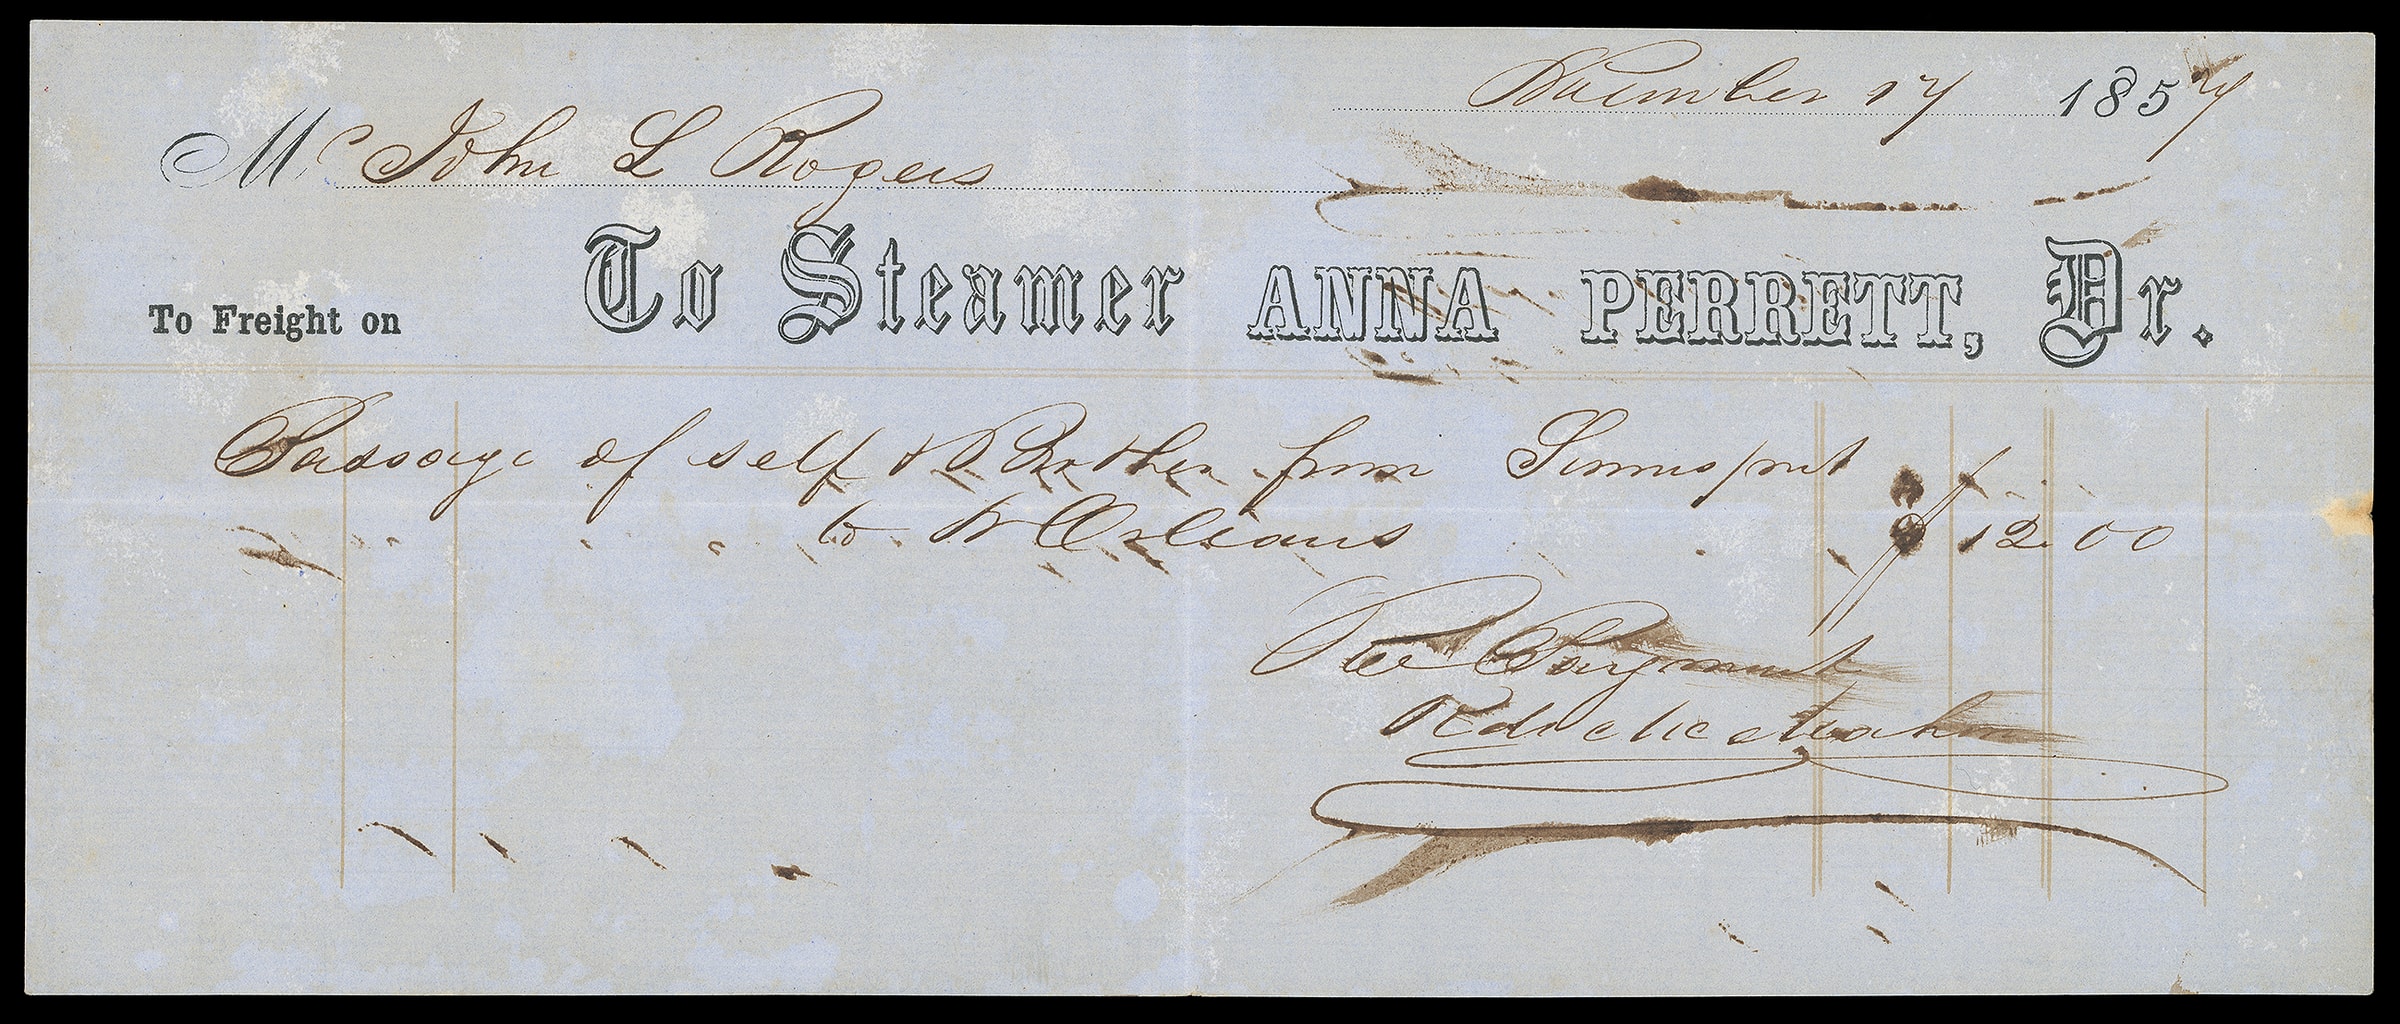 November 17 1857
Mr John L Rogers
To Freight on To Steamer ANNA PERRETT, Dr.
Passage of self & Brother from Simmsport
to N Orleans $12.00
Rec Payment